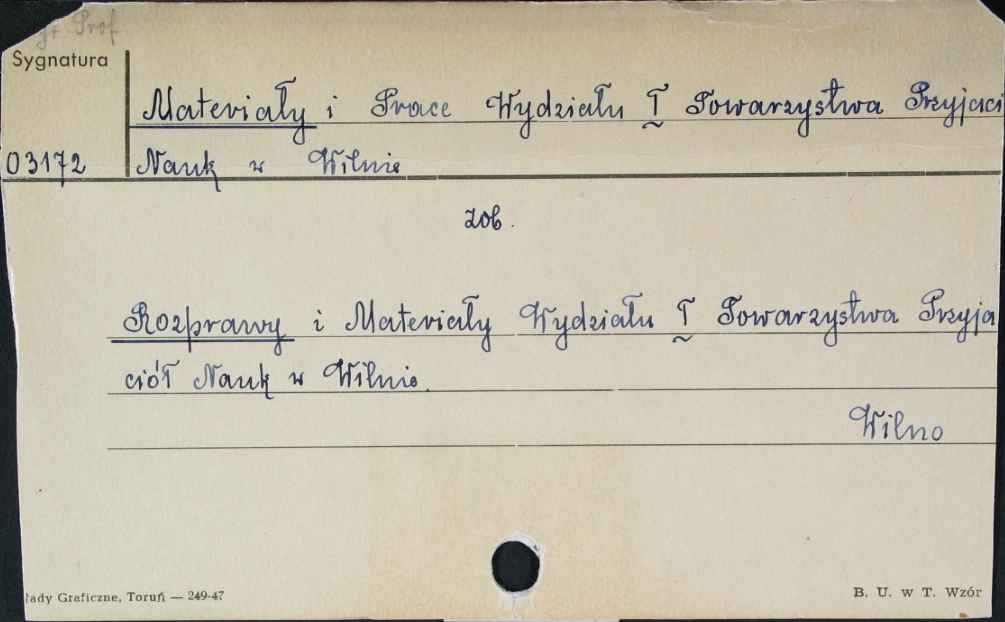 Prof
Sygnatura
Materiały i Prace Wydziału I Towarzystwa Przyjaci
03172 Nauk w Wilnie
zob.
Rozprawy i Materiały Wydziału I Towarzystwa Przyja
ciół Nauk w Wilnie.
Wilno
łady Graficzne, Toruń — 249-47
B. U. w T. Wzór